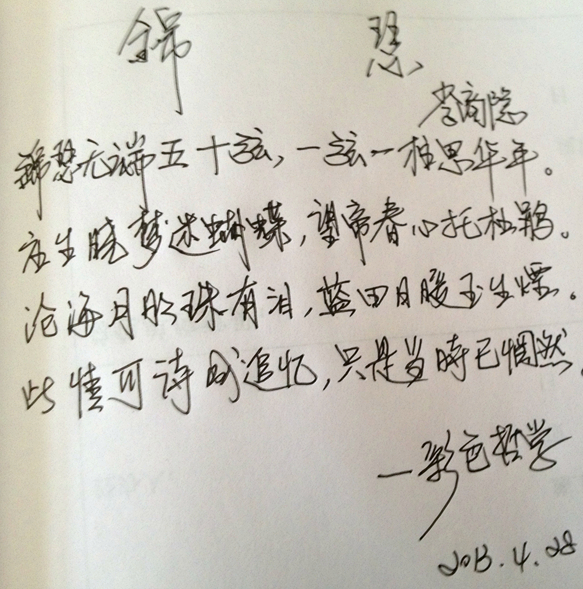 锦 瑟
李商隐
锦瑟无端五十弦，一弦一柱思华年。
庄生晓梦迷蝴蝶，望帝春心托杜鹃。
沧海月明珠有泪，蓝田日暖玉生烟。
此情可诗成追忆，只是当時已惘然。
—彩色哲学
2013.4.28